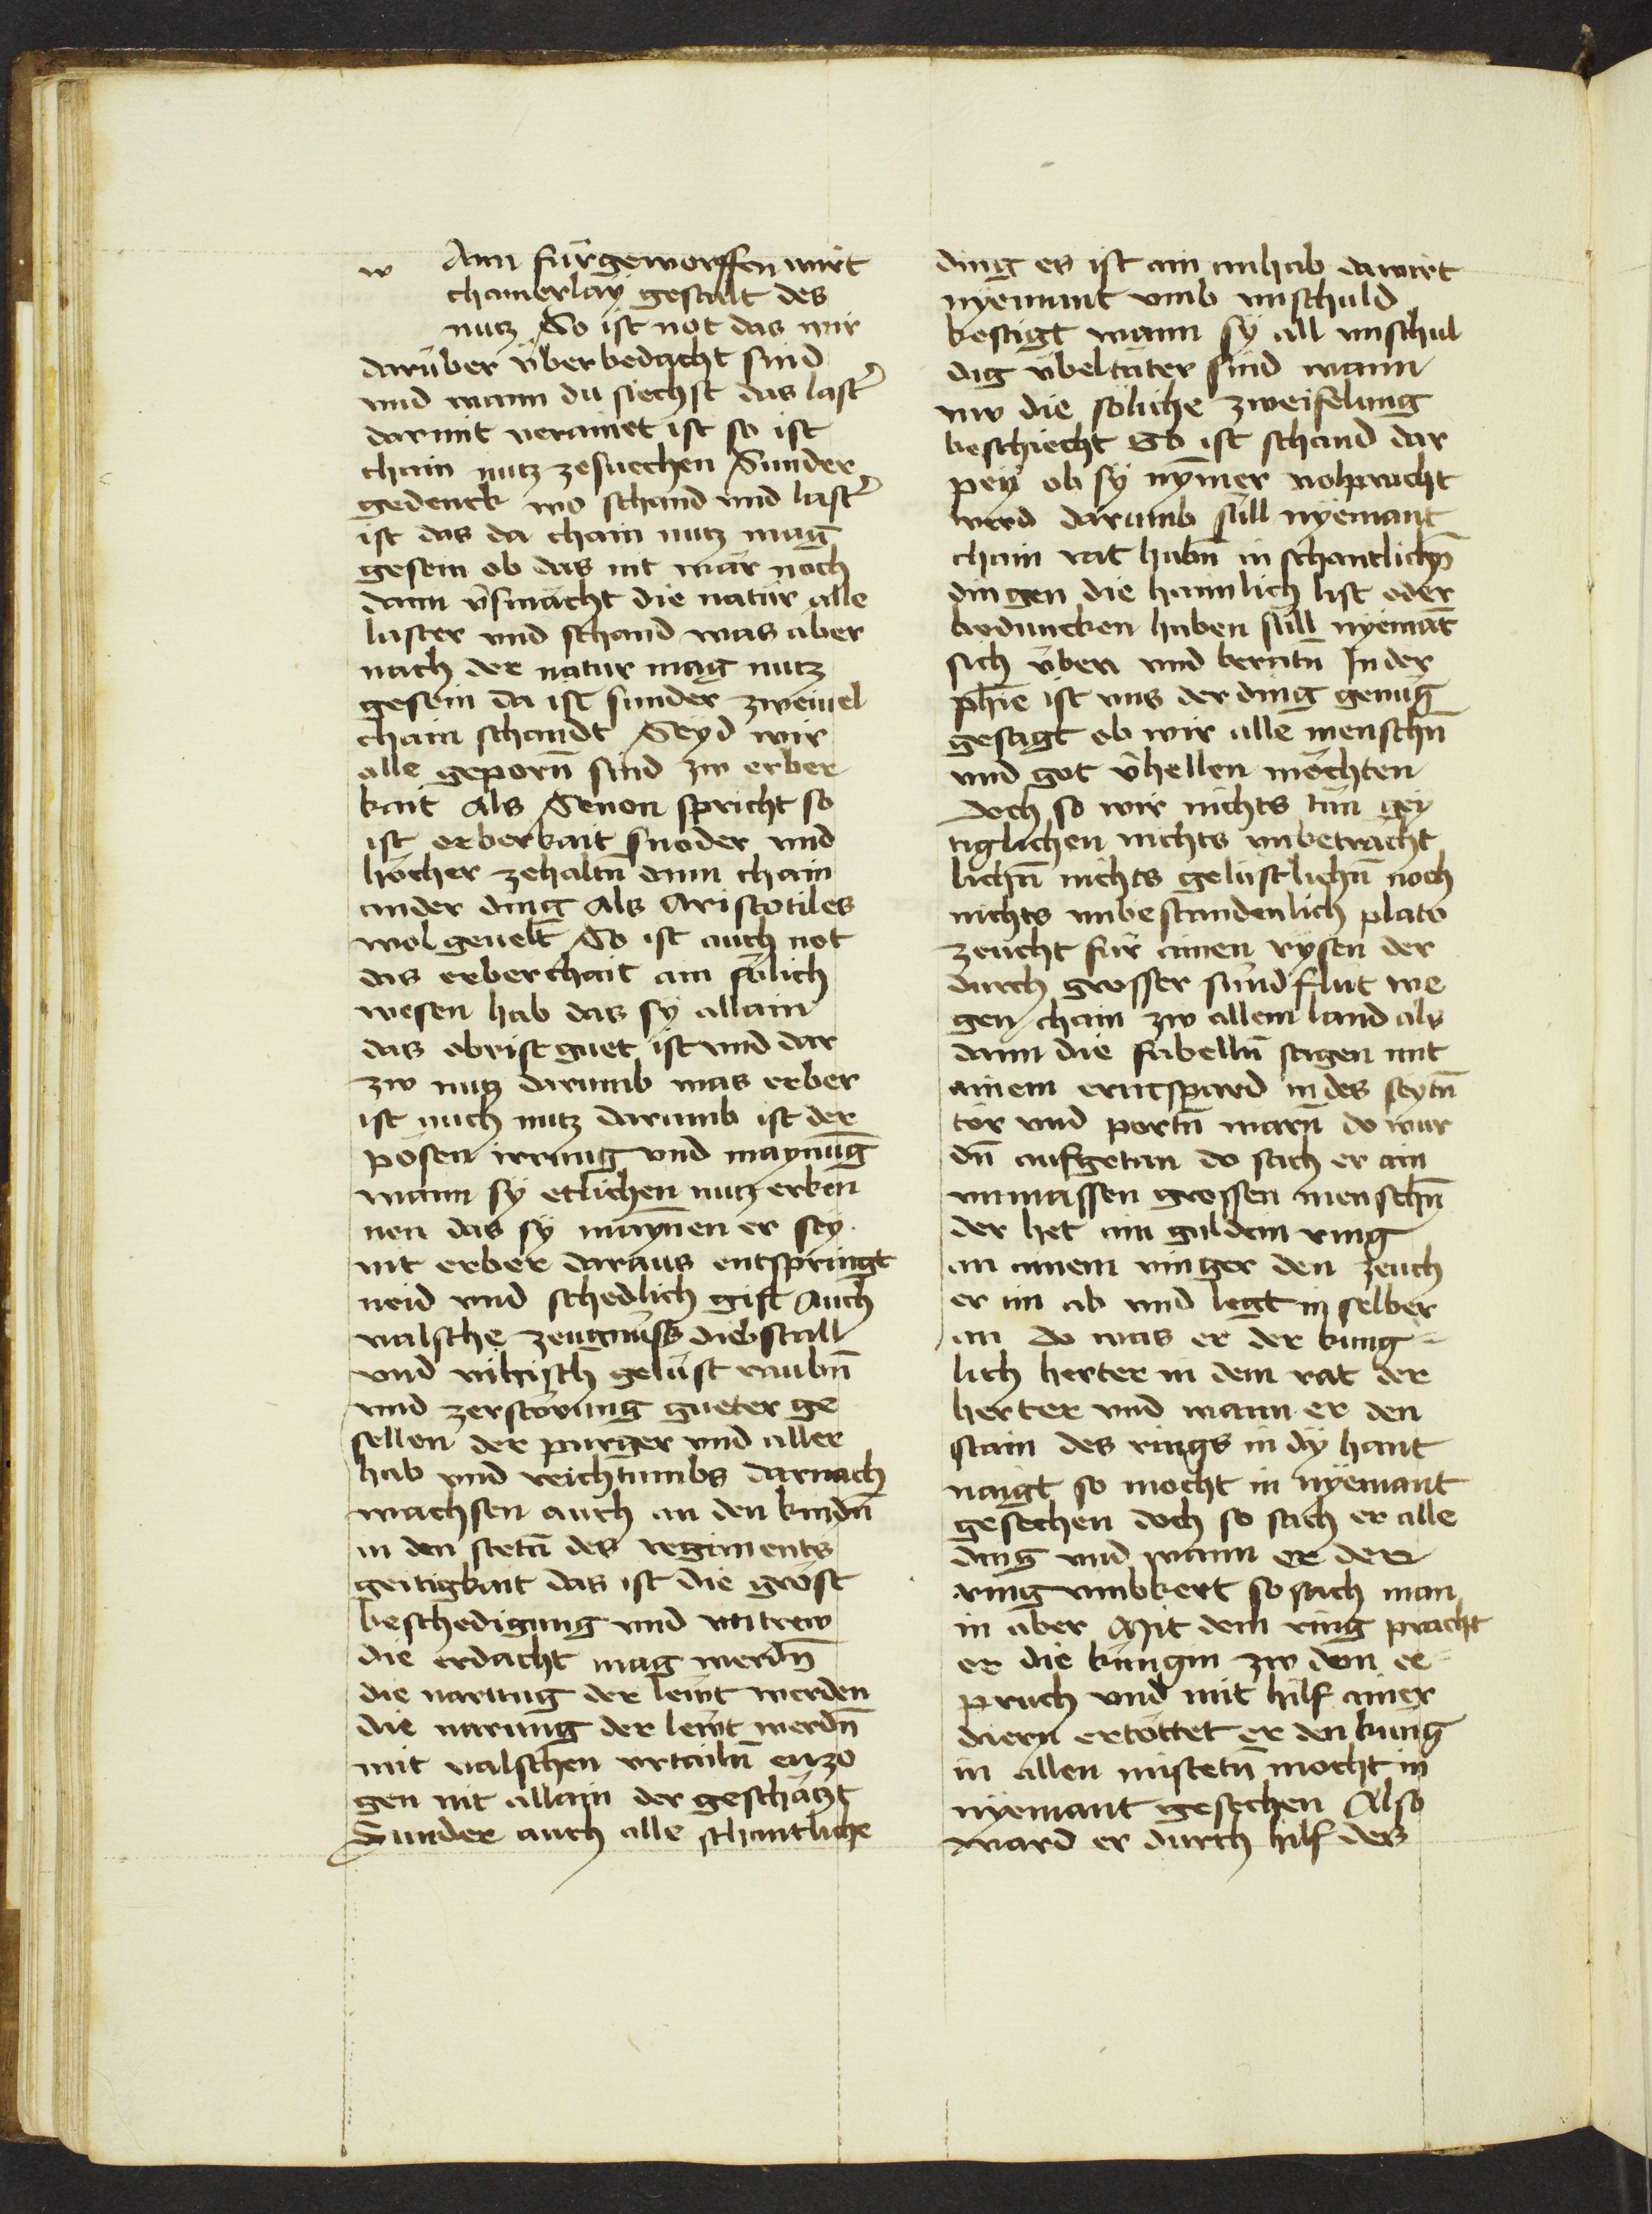 w Ann fürgeworffen wirt
chainerlay gestalt des
nutz So ist not das wir
darüber überbedacht sind
vnd wann du siechst das last͛
darmit verainet ist so ist
chain nutz zesuechen Sunder
gedenck wo schand vnd last͛
ist das da chain nutz mag
gesein ob das nit wär noch
dann v̂smächt die natür alle
laster vnd schand was aber
nach der natur mag nutz
gesein da ist sunder zweiuel
chain schandt Seyd wir
alle geporñ sind zw erber
kait Als Senon spricht so
ist erberkait snoder vnd
höcher zehaltñ dann chain
ander ding Als Aristotiles
wol geuelt So ist auch not
das erberchait ain sölich
wesen hab das sy allain
das obrist guet ist vnd dar
zw nutz darumb was erber
ist auch nutz darumb ist der
pösen irrung vnd maynūg
wann sy etlichen nutz erken
nen das sy maynen er sey
nit erber daraus entspringt
neid vnd schedlich gift Auch
valsche zeugnuss diebstall
vnd vihisch gelüst raubñ
vnd zerstörung gueter ge
sellen der purger vnd aller
hab vnd reichtumbs darnach
wachsen auch an den kindñ
in den stetñ des regiments
geitigkait das ist die gröst
beschedigung vnd vntrew
die erdacht mag werdñ
die narung der lewt werden
die narung der lewt werdñ
mit valschen vrtailñ enzo
gen nit allain der geschätzt
Sunder auch alle schantliche
ding es ist ain anhab da wirt
nyemant vmb vnschuld
kestigt wann sy all vnschul
dig übeltäter sind wann
nw die söliche zweifelung
beschiecht So ist schand dar
pey ob sy nymer volpracht
werd darumb süll nyemant
chain rat habñ in schantlichñ
dingen die haimlich list oder
beduncken haben süll nyemāt
sich üben vnd beratñ In der
phīe ist vns der ding genüg
gesagt ob wir alle menschñ
vnd got v̂hellen möchten
doch so wir nichts tün gey
tiglichen nichts vnbetracht
lichñ nichts gelüstlichñ noch
nichts vnbestandenlich plato
zeucht für ainen rysen der
durch grosser sündflüt we
gen cham zw allem land als
dann die fabelln sagen mit
ainem erntspard in des seytñ
tör vnd portñ warñ do wur
dñ aufgetan do sach er ain
vnmassen grossen menschñ
der het ain guldein ring
an ainem vinger den zeuch
er im ab vnd legt in selber
an do was er der küng
lich herter in dem rat der
herter vnd wann er den
stain des rings in dy hant
naigt so mocht in nyemant
gesechen doch so sach er alle
ding vnd wann er den
ring vmbkert so sach man
in aber Mit dem ring pracht
er die küngin zw dem ee
pruch vnd mit hilf ainer
diern ertöttet er den küng
in allen mistetñ mocht in
nyemant gesechen Also
ward er durch hilf des